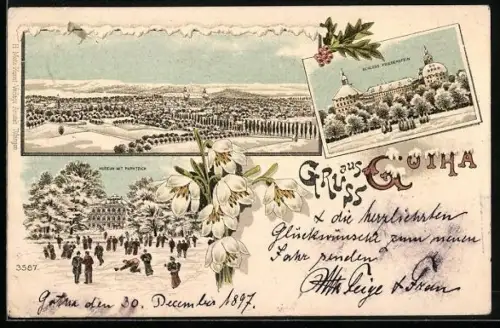 SCHLOSS FRIEDENSTEIN
MUSEUM MIT PARKTEICH
Gruss aus
GOTHA
& die herzlichsten
Glückwünsche zum neuen
Jahr senden
Feige & Frau
3587.
Gotha den 30. December 1897.